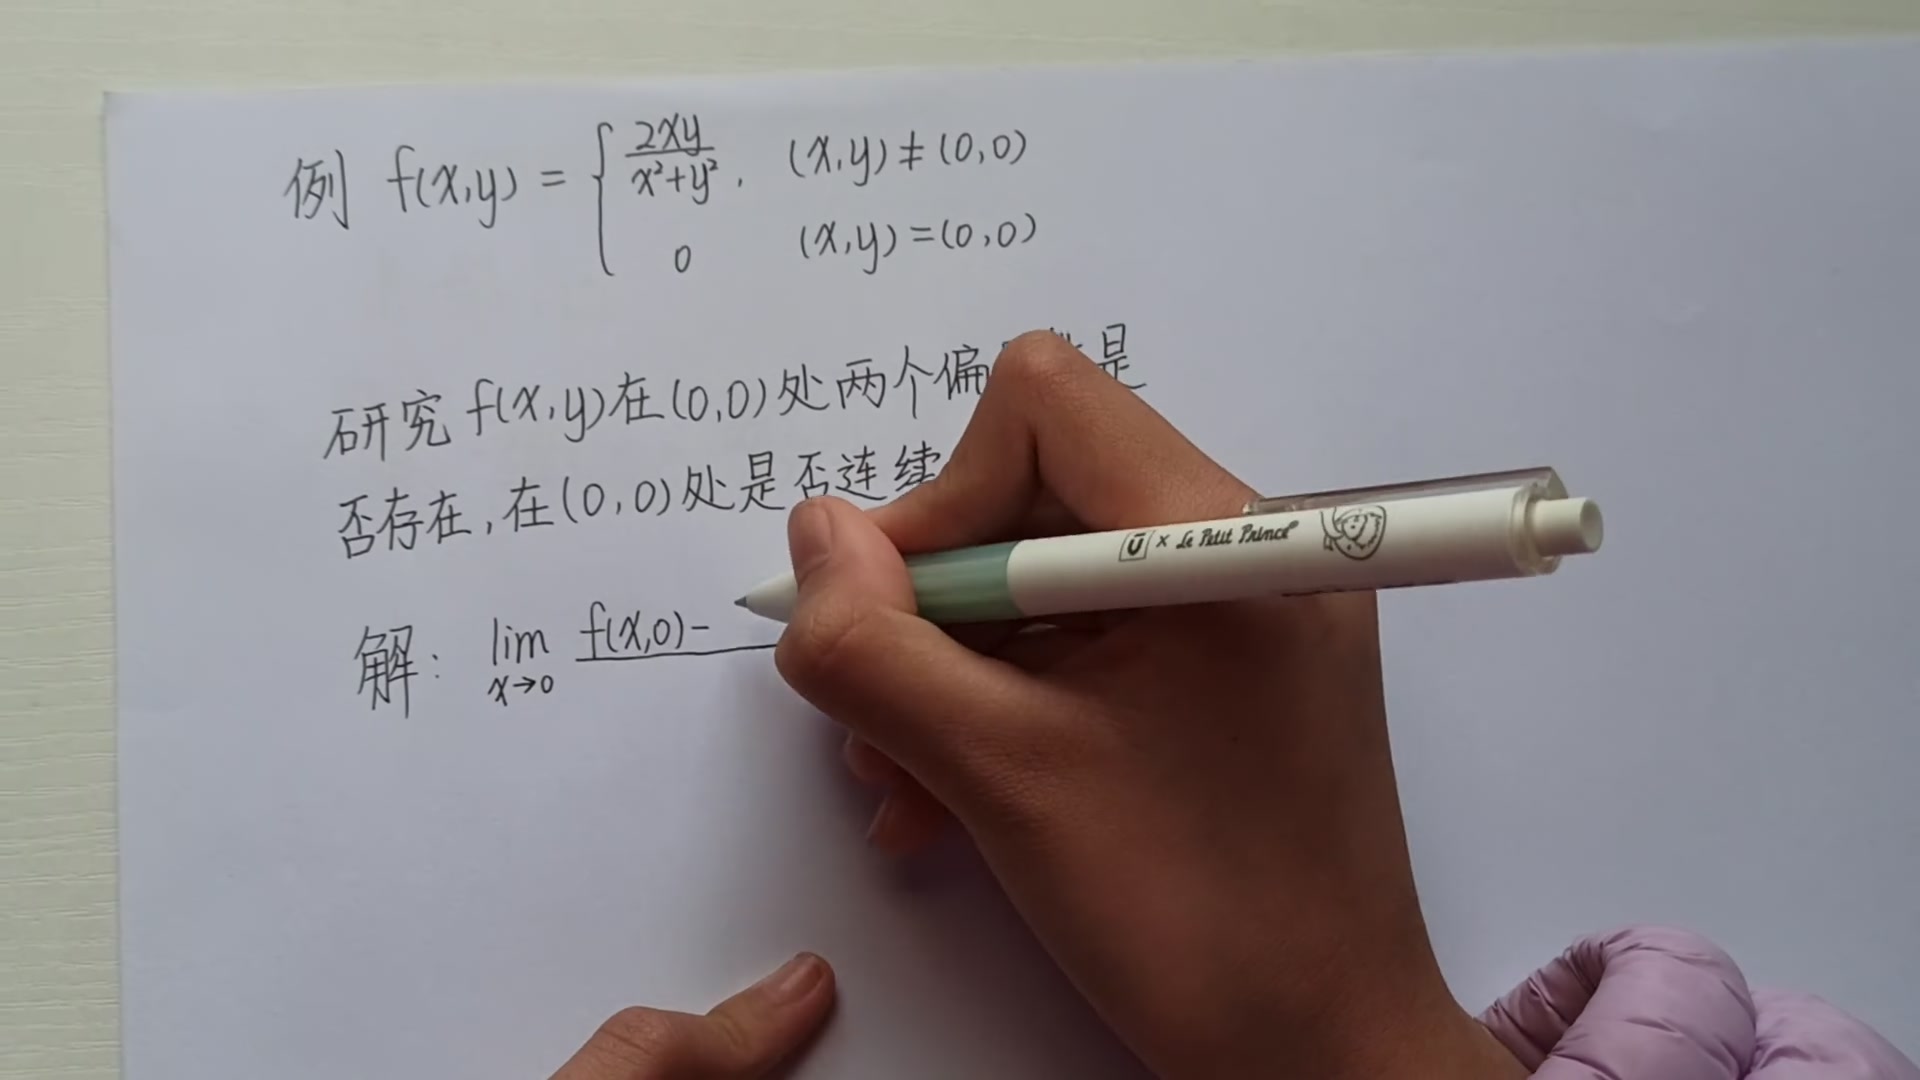 例 f(x,y) = { 2xy / x²+y² , (x,y) ≠ (0,0)
0 (x,y) = (0,0)
研究 f(x,y)在(0,0)处两个偏 是
否存在,在(0,0)处是否连续
解: lim x→0 f(x,0)-
Ū × Le Petit Prince